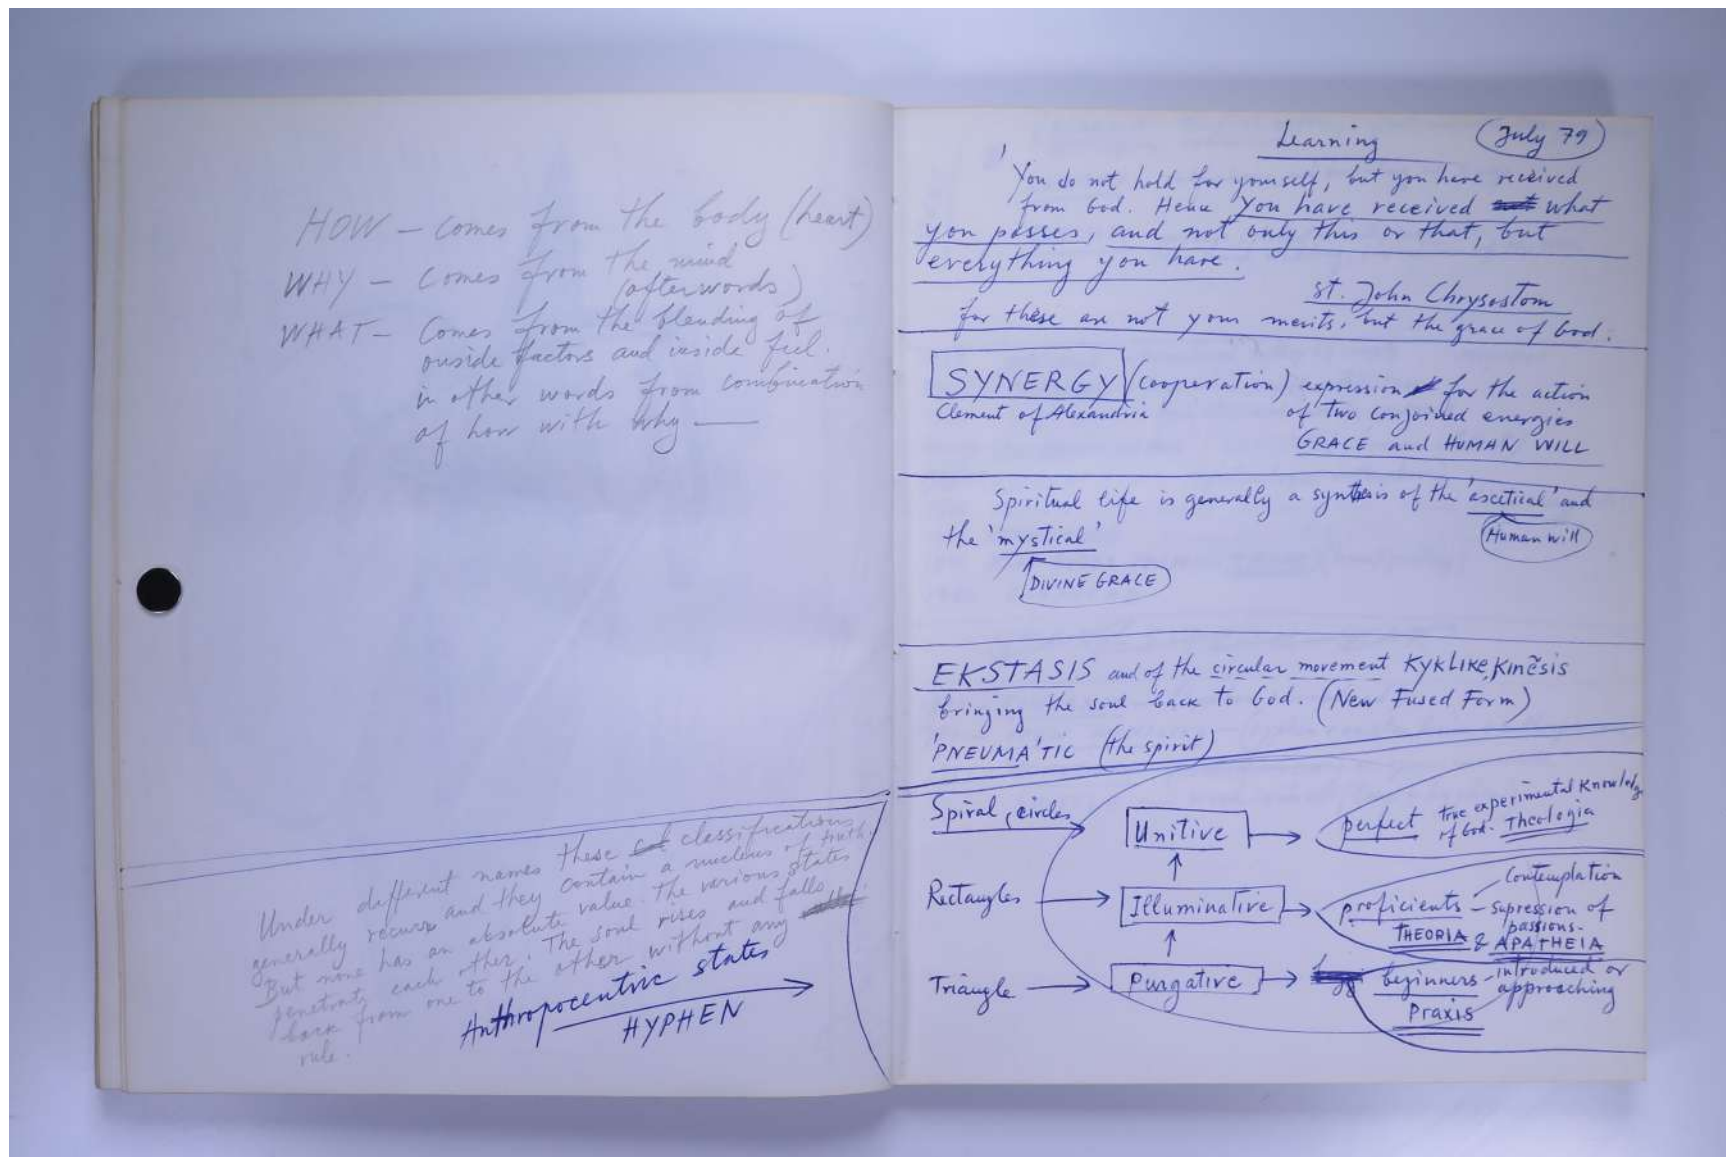 HOW – comes from the body (heart)
WHY – comes from the mind
(afterwords)
WHAT – Comes from the blending of
ouside factors and inside feel.
in other words from combination
of how with why —
Under different names these classifications
generally recurr and they contain a nucleus of truth.
But none has an absolute value. The various states
penetrate each other. The soul rises and falls
back from one to the other without any
rule.
Anthropocentric states
HYPHEN
Learning (July 79)
'You do not hold for yourself, but you have received
from God. Hence you have received what
you posses, and not only this or that, but
everything you have.
St. John Chrysostom
for these are not your merits, but the grace of God.
SYNERGY (cooperation) expression for the action
Clement of Alexandria of two conjoined energies
GRACE and HUMAN WILL
Spiritual life is generally a synthesis of the 'ascetical' and
the 'mystical' Human will
DIVINE GRACE
EKSTASIS and of the circular movement KYKLIKE, Kinēsis
bringing the soul back to God. (New Fused Form)
'PNEUMA'TIC (the spirit)
Spiral, circles Unitive perfect true experimental Knowledg
of God. Theologia
Contemplation
Rectangles Illuminative proficients – supression of
passions-
THEORIA & APATHEIA
Triangle Purgative beginners – introduced or
approaching
Praxis